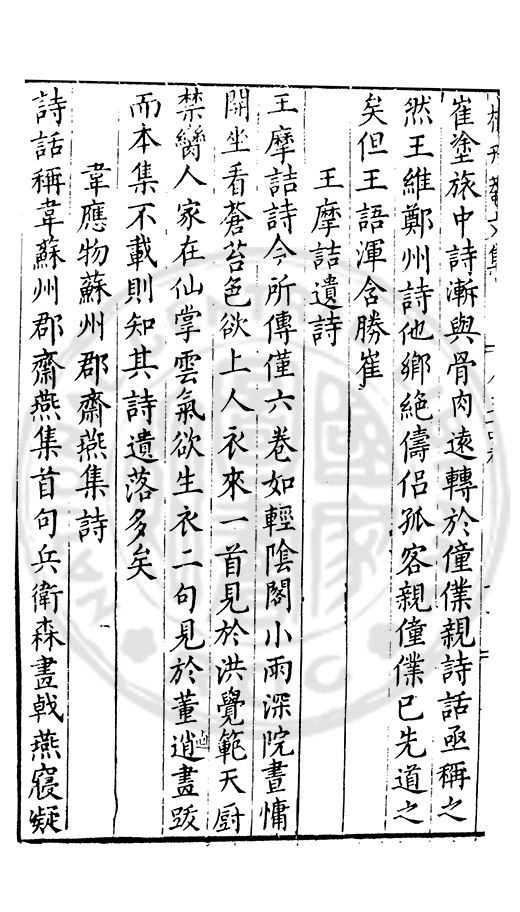 崔塗旅中詩漸與骨肉遠轉於僮僕親詩話亟稱之
然王維鄭州詩他鄉絶儔侶孤客親僮僕已先道之
矣但王語渾含勝崔
王摩詰遺詩
王摩詰詩今所傳僅六卷如輕陰閣小雨深院晝慵
開坐看蒼苔色欲上人衣來一首見於洪覺範天厨
禁臠人家在仙掌雲氣欲生衣二句見於董逌畫跋
而本集不載則知其詩遺落多矣
韋應物蘇州郡齋燕集詩
詩話稱韋蘇州郡齋燕集首句兵衛森畫戟燕寢凝